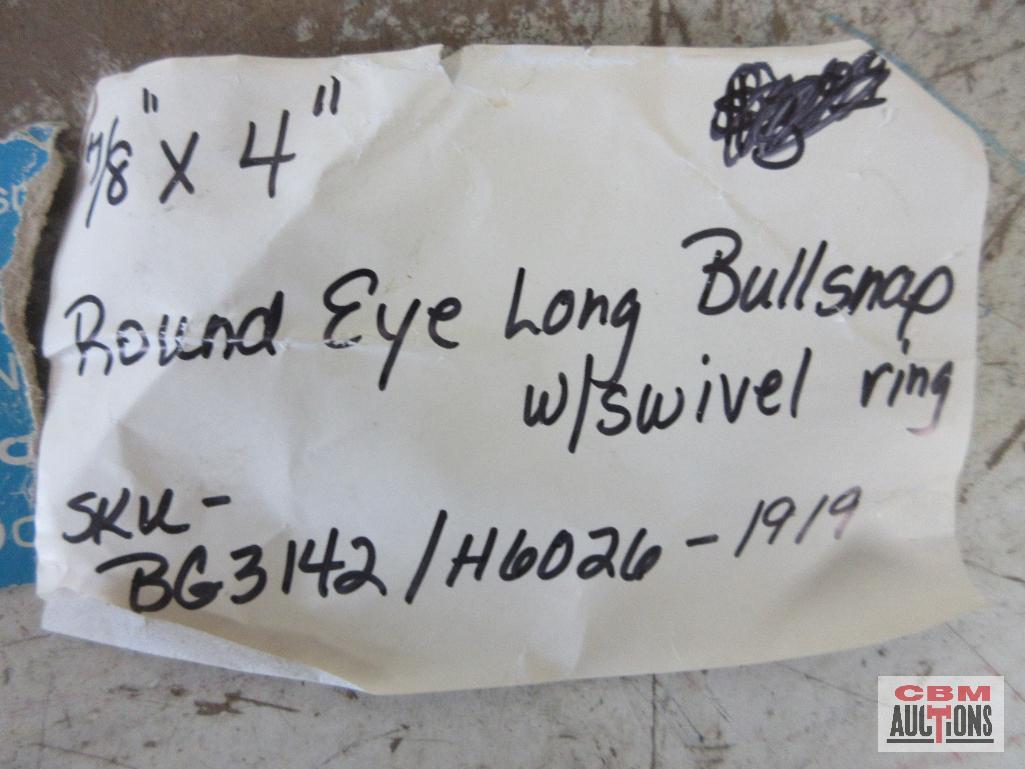 7/8" X 4"
Round Eye Long Bullsnap
w/swivel ring
SKU-
BG3142/H6026-1919
CBM
AUCTIONS